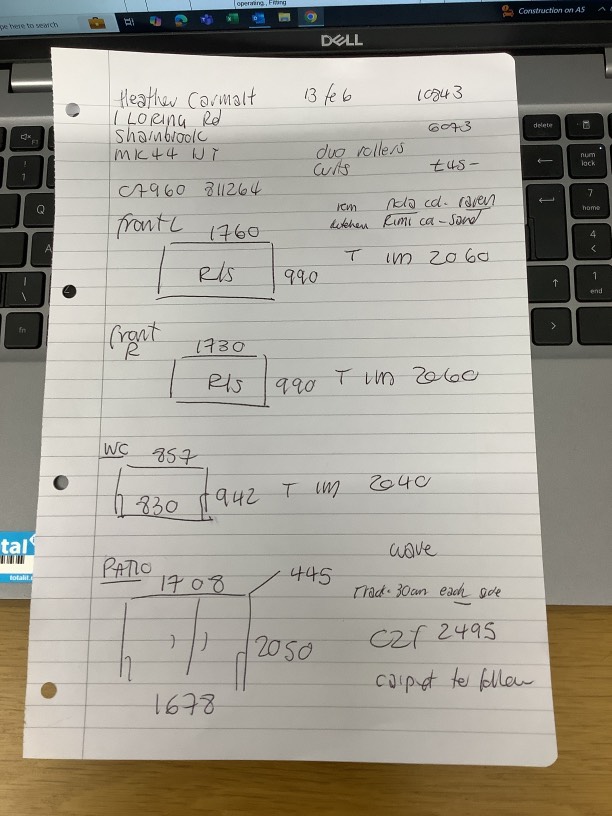 operating, Fitting
pe here to search
Construction on A5
DELL
Heather Carmalt 13 feb 10843
1 LORING Rd 6093
Sharnbrook
MK44 duo rollers
curts £45-
07960 811264
rem raven
kitchen Rimi ca- Sand
front L 1760
R/s 990 T im 2060
front
R 1730
R/s 990 T im 2060
WC 857
830 942 T im 2040
PATIO wave
1708 445
Track. 30cm each side
2050 C2F 2495
carpet to follow
1678
delete
num
lock
7
home
4
1
end
Q
A
fn
tal
totalit.